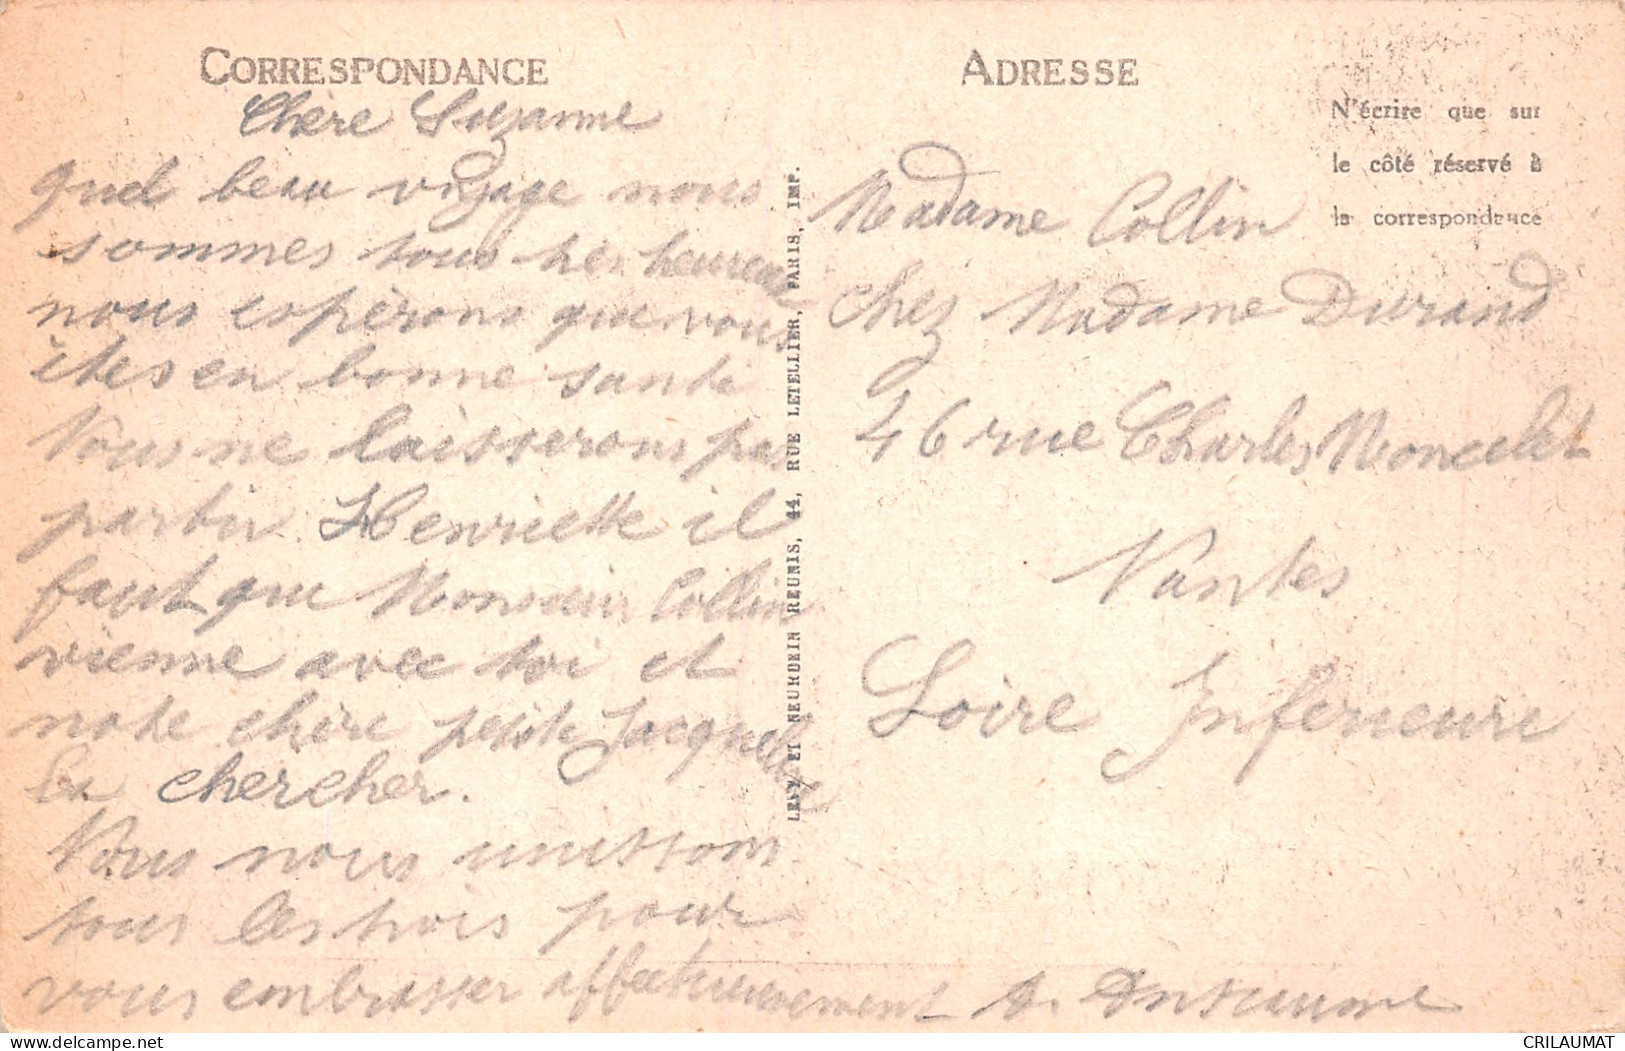 CORRESPONDANCE
Chère Suzanne
Quel beau voyage nous
sommes tous très heureux
nous espérons que vous
êtes en bonne santé
Nous ne laisserons pas
partir Henriette il
faut que Monsieur Collin
vienne avec toi et
notre chère petite Jacqueline
la chercher.
Nous nous unissons
tous les trois pour
vous embrasser affectueusement A. Anseaume
LEVY ET NEURDEIN REUNIS, 44, RUE LETELLIER, PARIS, IMP.
ADRESSE
N'écrire que sur
le côté réservé à
la correspondance
Madame Collin
chez Madame Durand
46 rue Charles Monselet
Nantes
Loire Inférieure
CRILAUMAT